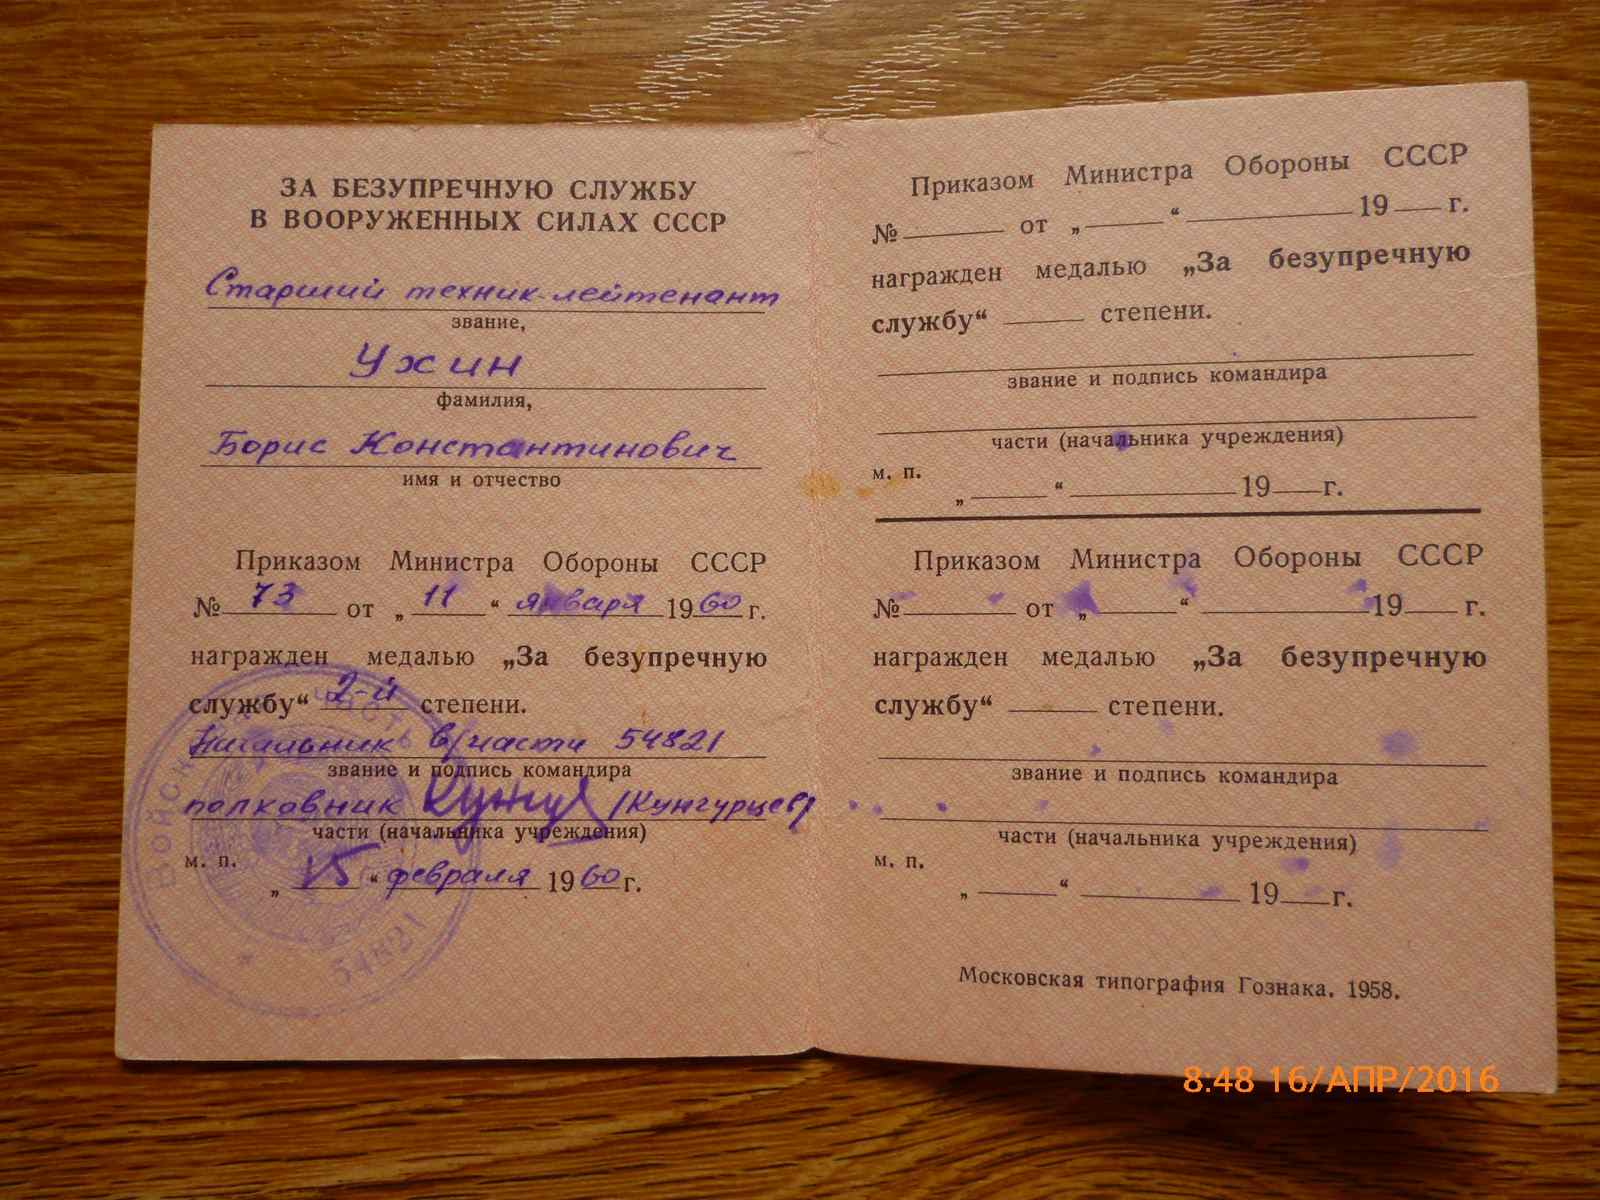 ЗА БЕЗУПРЕЧНУЮ СЛУЖБУ
В ВООРУЖЕННЫХ СИЛАХ СССР
Старший техник-лейтенант
звание,
Ужин
фамилия,
Борис Константинович
имя и отчество
Приказом Министра Обороны СССР
№ 73 от „ 11 “ января 1960 г.
награжден медалью „За безупречную
службу“ 2-й степени.
Начальник в/части 54821
звание и подпись командира
полковник /Кунгурцев/
части (начальника учреждения)
м. п.
„ 15 “ февраля 1960 г.
54821
Приказом Министра Обороны СССР
№ от „ “ 19 г.
награжден медалью „За безупречную
службу“ степени.
звание и подпись командира
части (начальника учреждения)
м. п.
„ “ 19 г.
Приказом Министра Обороны СССР
№ от „ “ 19 г.
награжден медалью „За безупречную
службу“ степени.
звание и подпись командира
части (начальника учреждения)
м. п.
„ “ 19 г.
Московская типография Гознака. 1958.
8:48 16/АПР/2016